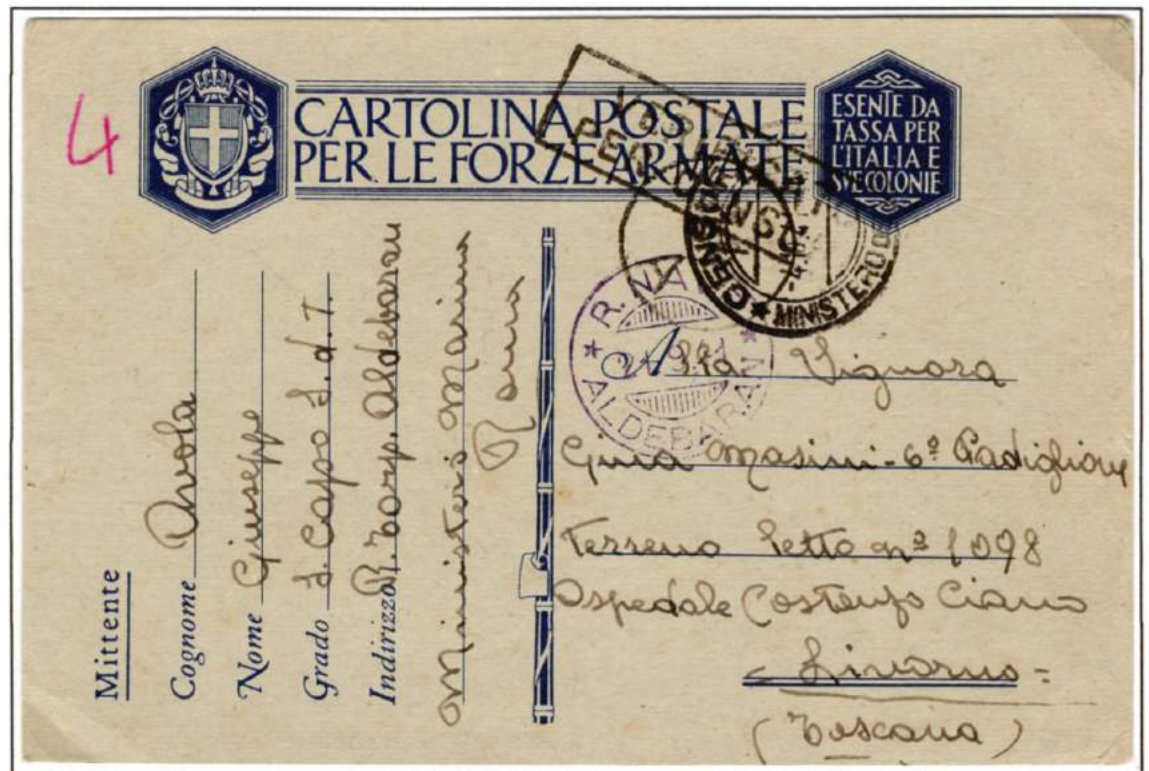 4
CARTOLINA POSTALE
PER LE FORZE ARMATE
ESENTE DA
TASSA PER
L'ITALIA E
SVE COLONIE
VERIFICATO
PER CENSURA
MINISTERO D
R. NA
ALDEBARAN
Mittente
Cognome Avola
Nome Giuseppe
Grado S. Capo S. d. T.
Indirizzo R. Torp. Aldebaran
Ministero Marina
Roma
Alla Signora
Gina Masini - 6º Padiglione
Terreno letto nº 1098
Ospedale Costanzo Ciano
- Livorno -
(Toscana)